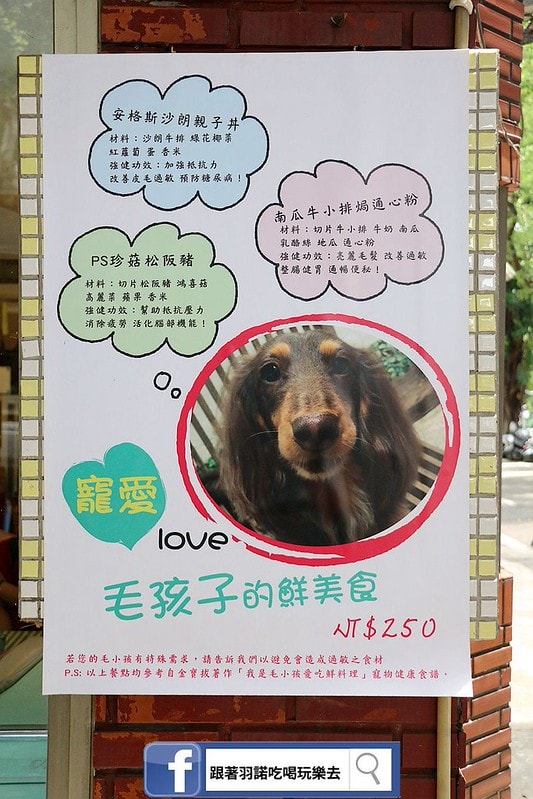 安格斯沙朗親子丼
材料：沙朗牛排 綠花椰菜
紅蘿蔔 蛋 香米
強健功效：加強抵抗力
改善皮毛過敏 預防糖尿病！
南瓜牛小排焗通心粉
材料：切片牛小排 牛奶 南瓜
乳酪絲 地瓜 通心粉
強健功效：亮麗毛髮 改善過敏
整腸健胃 通暢便秘！
PS珍菇松阪豬
材料：切片松阪豬 鴻喜菇
高麗菜 蘋果 香米
強健功效：幫助抵抗壓力
消除疲勞 活化腦部機能！
寵愛
love
毛孩子的鮮美食
NT$250
若您的毛小孩有特殊需求，請告訴我們以避免會造成過敏之食材
P.S: 以上餐點均參考自金寶拔著作「我是毛小孩愛吃鮮料理」寵物健康食譜．
f 跟著羽諾吃喝玩樂去